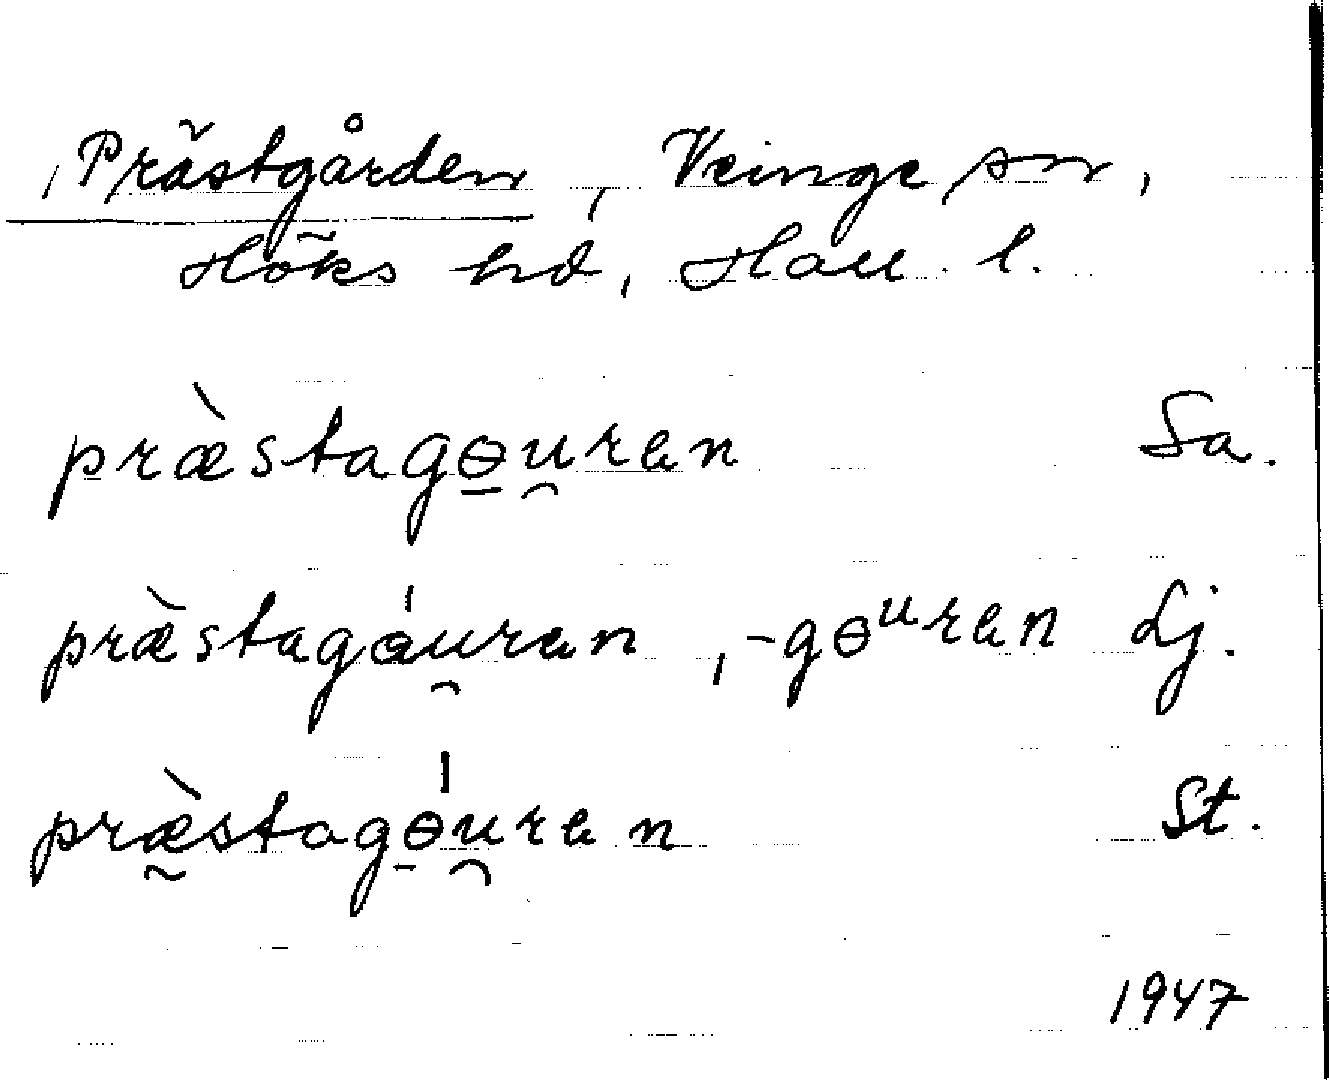 Prästgården, Veinge sn,
Höks hd, Hall. l.
præ̀stagɵ̠u̯ran Sa.
præ̀stagɵ́u̯ran, -gɵᵘran Lj.
præ̰̀stagɵ̠́u̯ran St.
1947